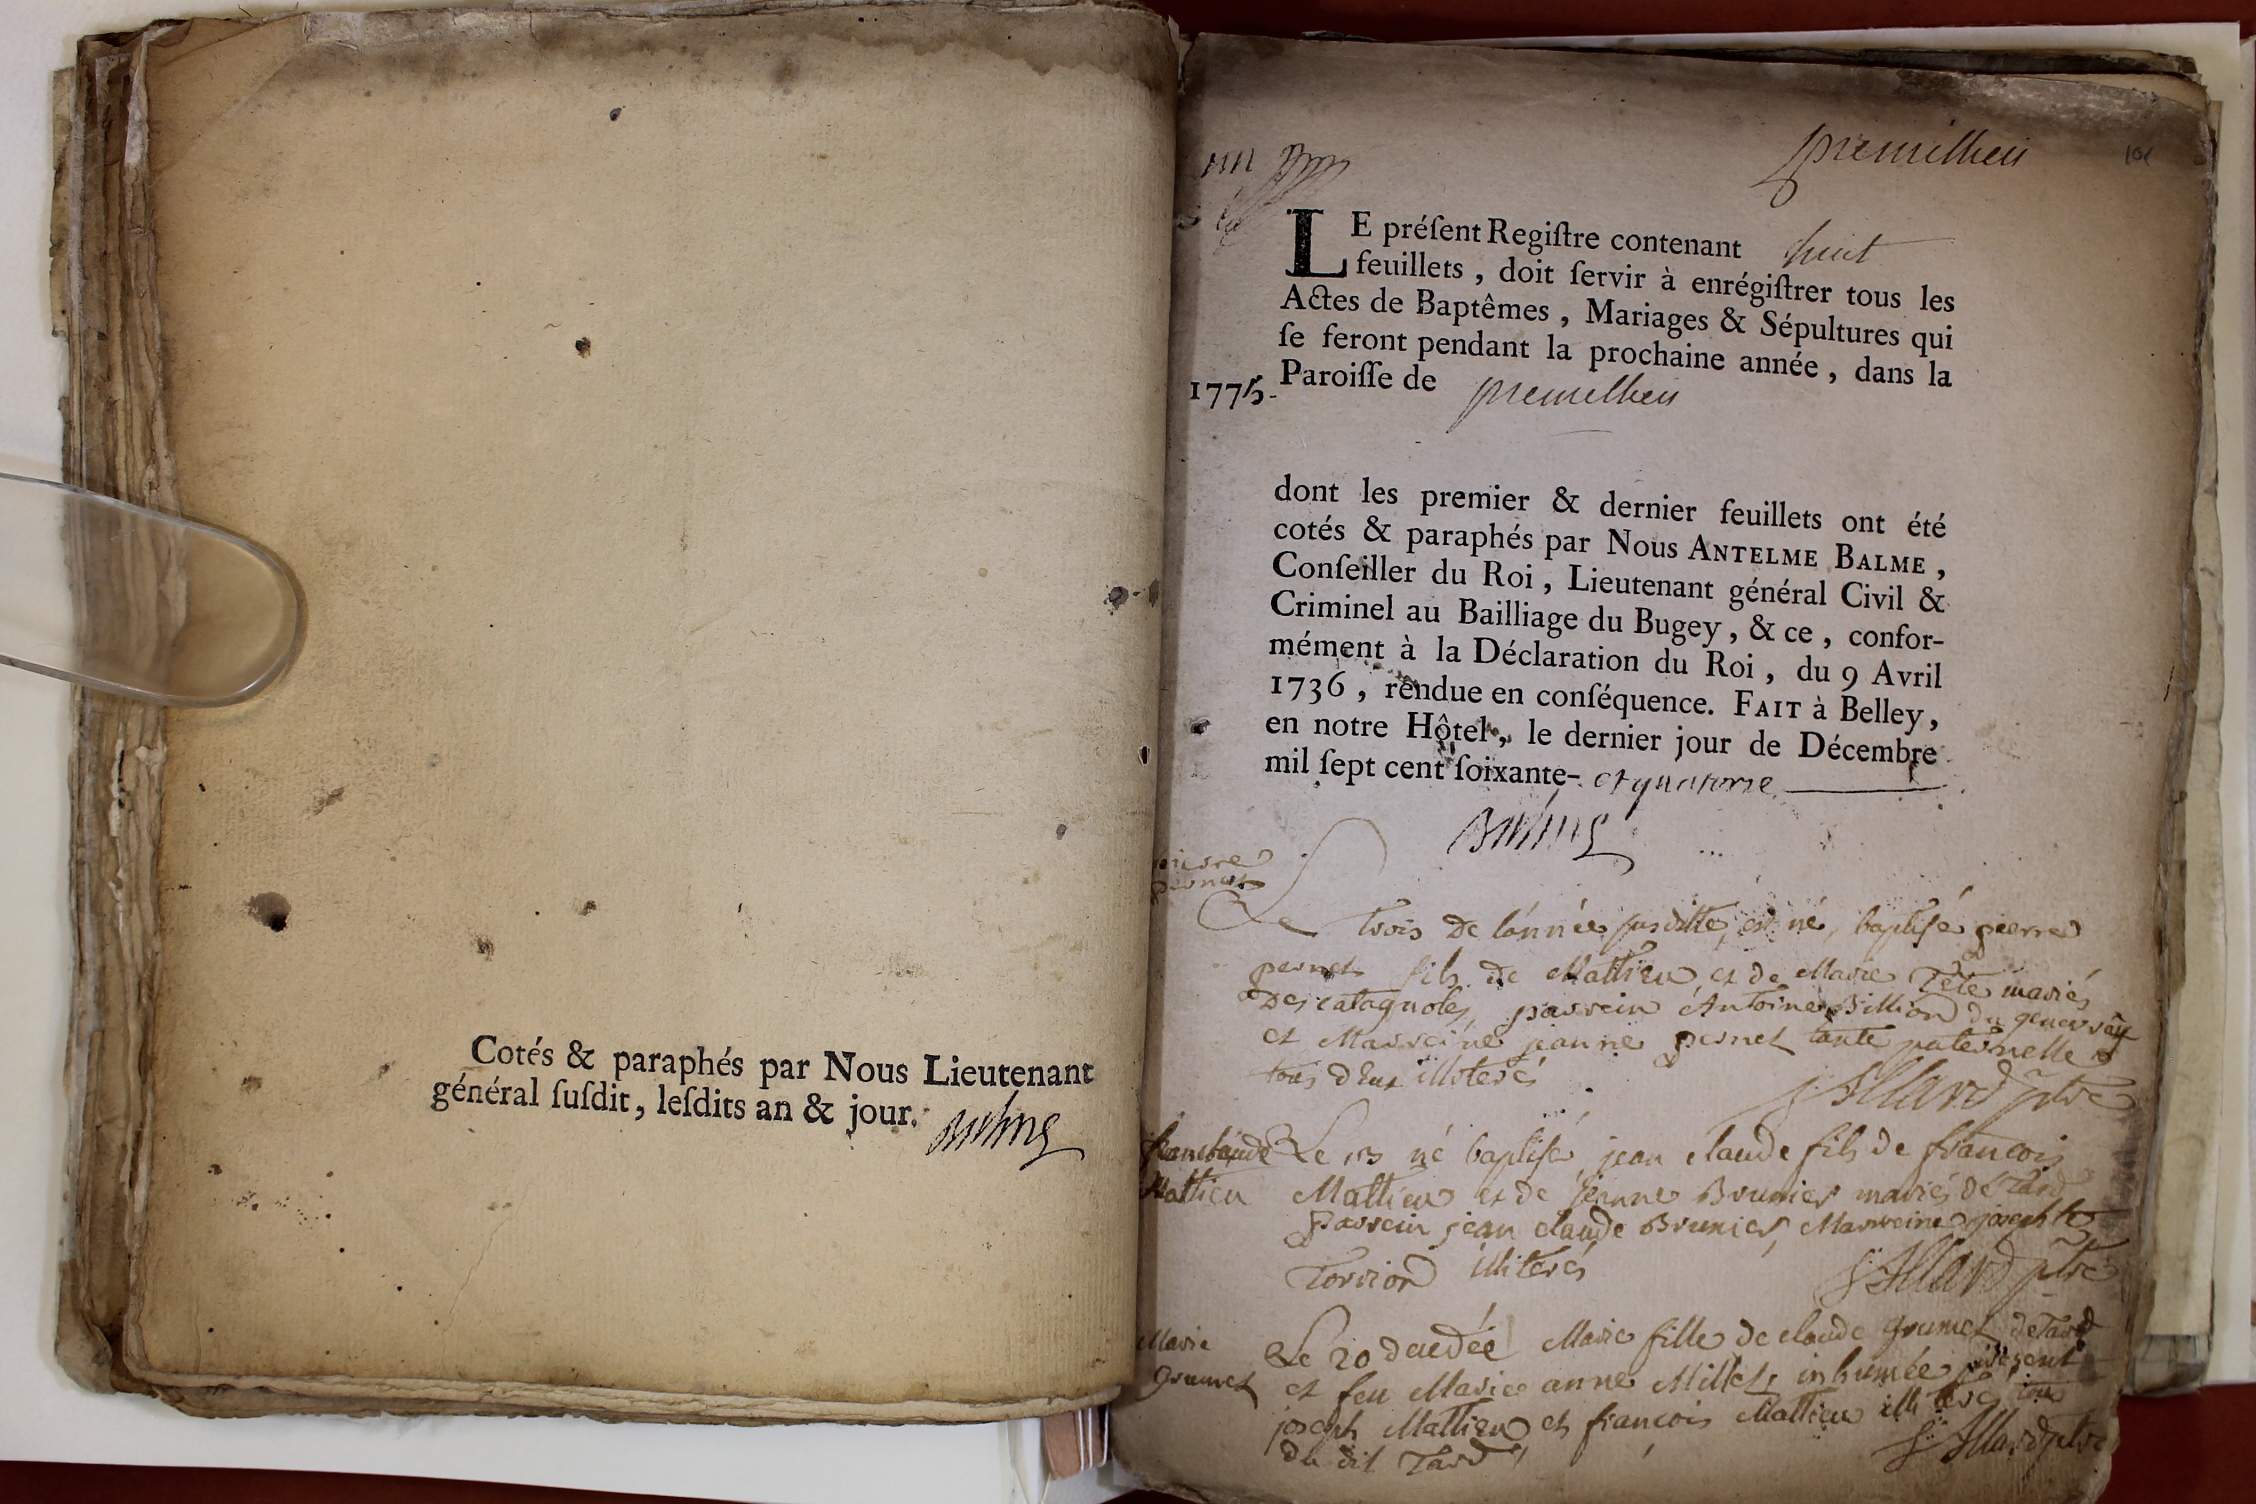 Cotés & paraphés par Nous Lieutenant
général ſuſdit, leſdits an & jour.
Balme
premillieu
LE préſent Regiſtre contenant huit
feuillets, doit ſervir à enrégiſtrer tous les
Actes de Baptêmes, Mariages & Sépultures qui
ſe feront pendant la prochaine année, dans la
1775. Paroiſſe de premillieu
dont les premier & dernier feuillets ont été
cotés & paraphés par Nous ANTELME BALME,
Conſeiller du Roi, Lieutenant général Civil &
Criminel au Bailliage du Bugey, & ce, confor-
mément à la Déclaration du Roi, du 9 Avril
1736, rendue en conſéquence. FAIT à Belley,
en notre Hôtel, le dernier jour de Décembre
mil ſept cent ſoixante- et quatorze
Balme
pierre
pernet
Le trois de lánnée susditte, est né, baptisé pierre
pernet fils de Mattieu et de Marie Tete mariés
Des catagnoles, parrein Antoine Billion du genevray
et Marreine jeanne pernet tante paternelle
tous deux illiterés
Jallard ptre
jean claude
Mattieu
Le 13 né baptisé jean claude fils de françois
Mattieu et de jeanne Brunier mariés de Tard
parrein jean claude Brunier, Marreine josephte
Torvion illiterés
Jallard ptre
Marie
grumet
Le 20 decedée Marie fille de claude grumet de Tard
et feu Marie anne Millet, inhumée présent
joseph Mattieu et françois Mattieu illiteré tou
du dit Tard
Jallard ptre